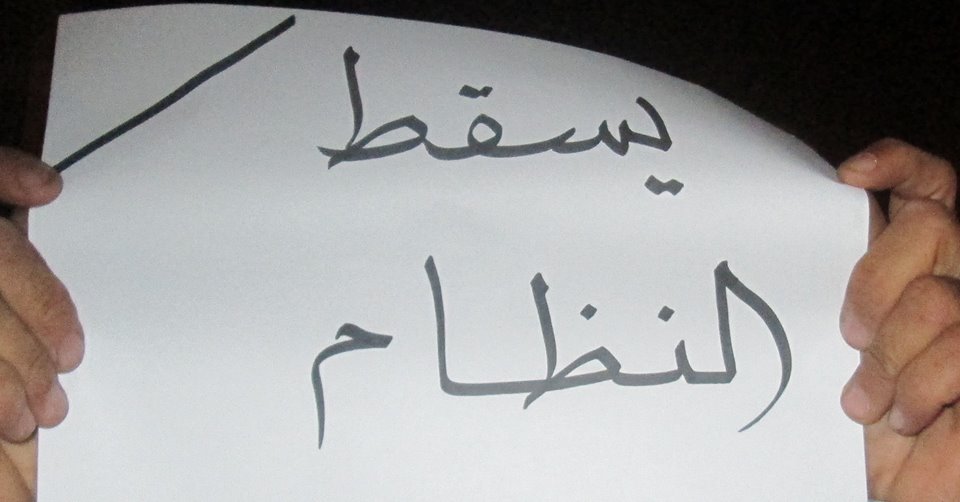 يسقط
النظام